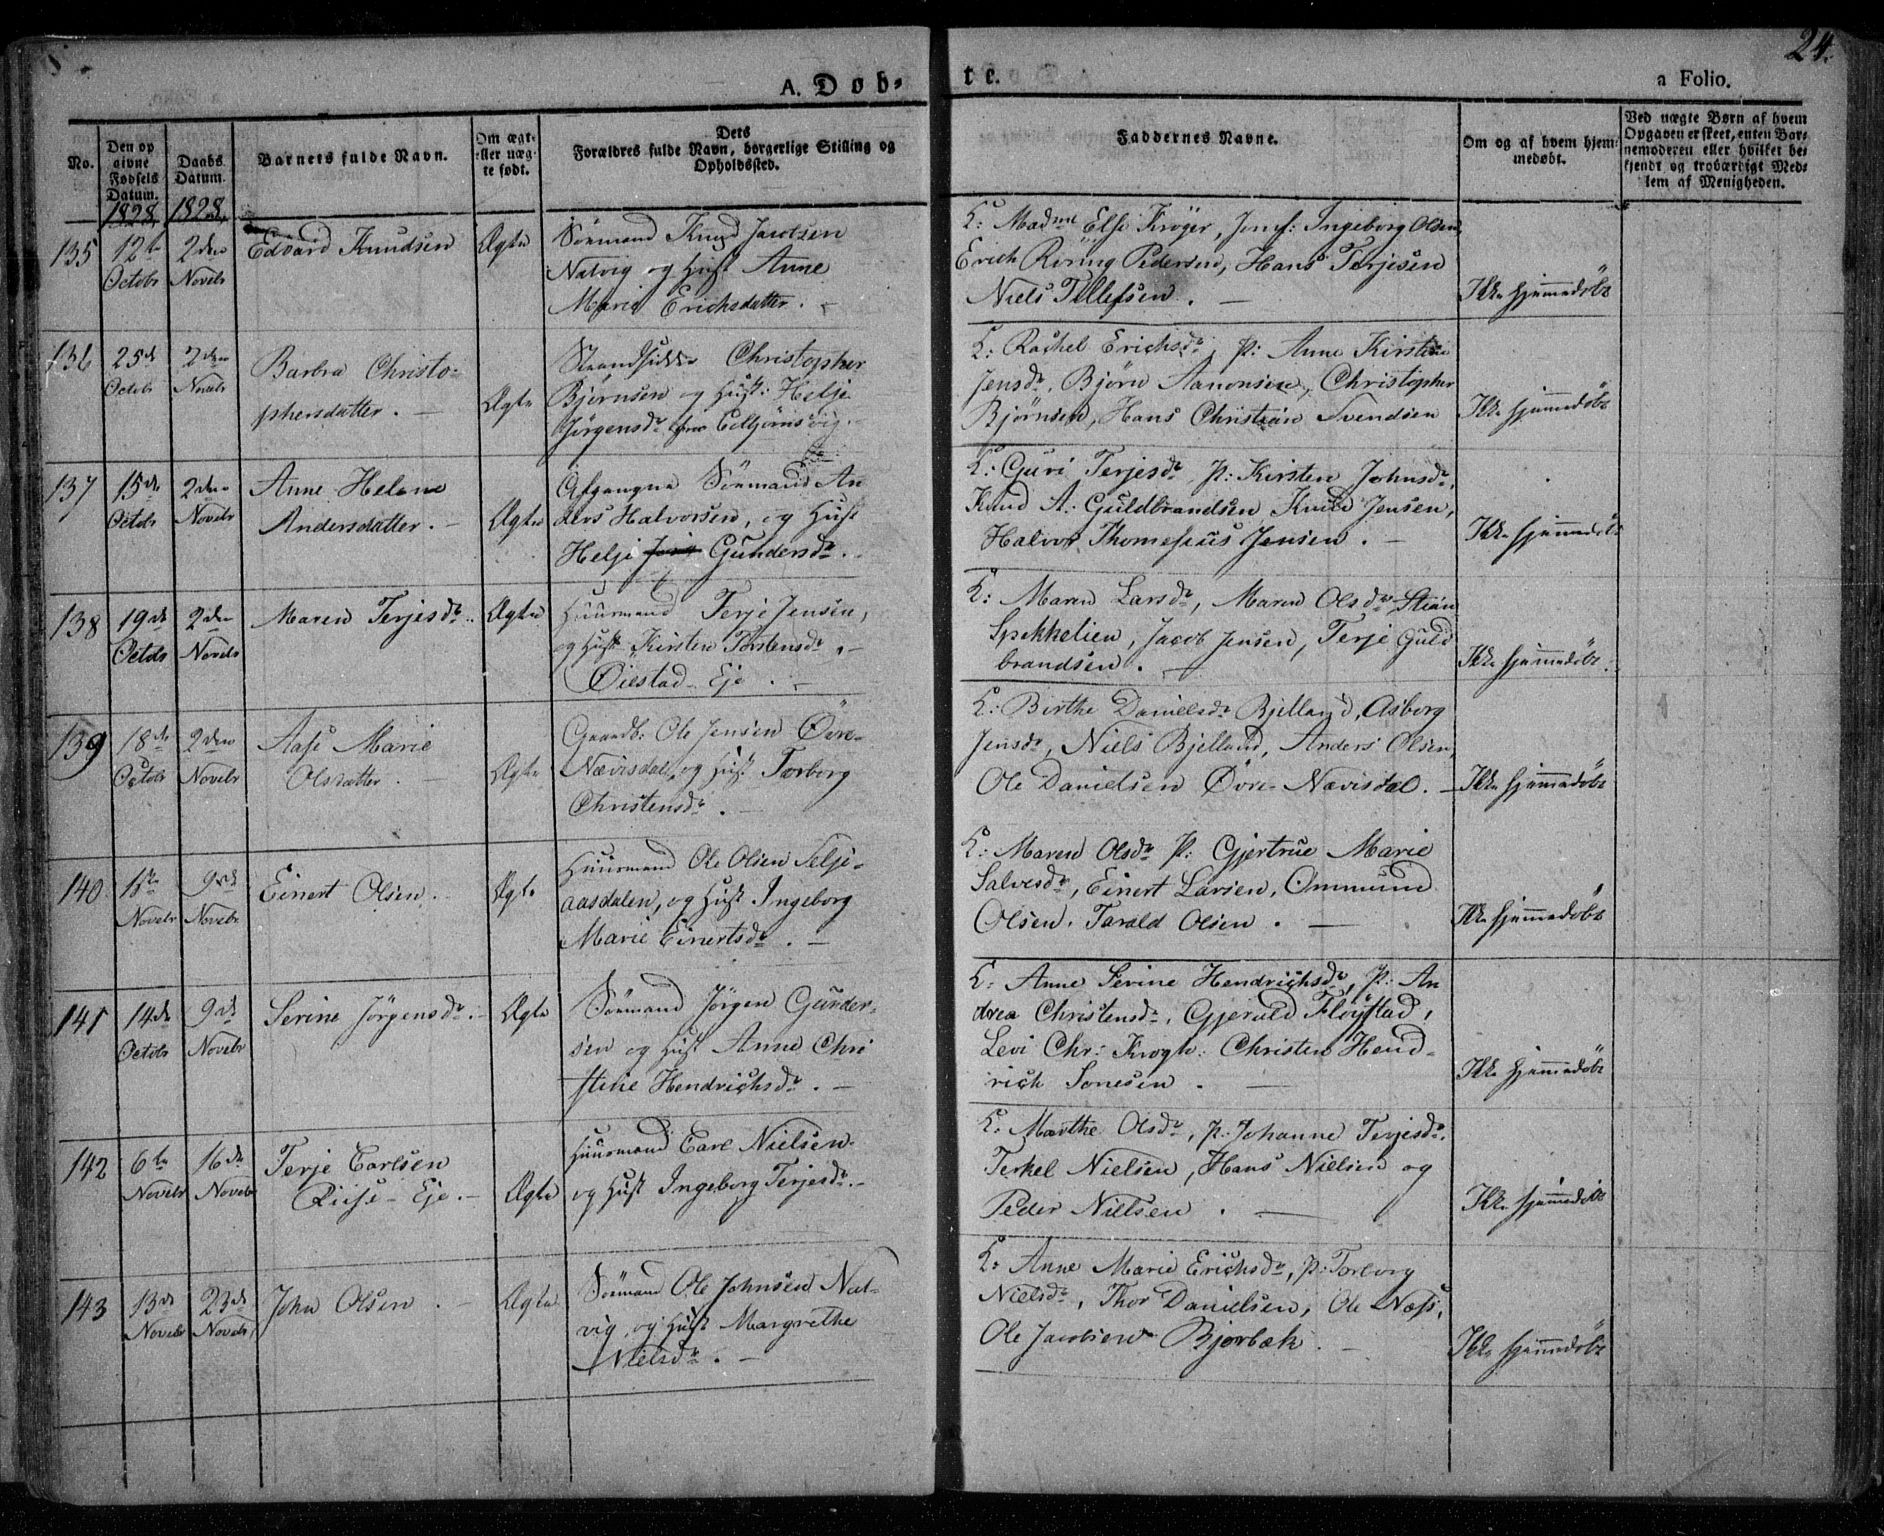 24.
A. Døb-
te.
a Folio.
No.
Den op
givne
Fødsels
Datum.
1828
Daabs
Datum.
1828
Barnets fulde Navn.
Om ægt-
eller uæg-
te født.
Dets
Forældres fulde Navn, borgerlige Stilling og
Opholdssted.
Faddernes Navne.
Om og af hvem hjem-
medøbt.
Ved uægte Børn af hvem
Opgaven er skeet, enten Bar-
nemoderen eller hvilket be-
kjendt og troværdigt Med-
lem af Menigheden.
135
12te
Octobr
2den
Novebr
Edvard Knudsen
Ægte
Sömand Knud Jacobsen
Natvig og Hust Anne
Marie Erichsdatter.
L: Madme Else Kröger, Jomf: Ingeborg Olsen,
Erich Röring Pedersen, Hans Terjesen
Niels Tellefsen.
Ikke hjemmedöbt
136
25de
Octobr
2den
Novebr
Barbra Christo-
phersdatter.
Ægte
Strandsidder Christopher
Björnsen og Hust: Helje
Jörgensdr Eeltjörnsvig.
L: Rachel Erichsdr, P: Anne Kirstine
Jensdr, Björn Aanonsen, Christopher
Björnsen, Hans Christian Svendsen
Ikke hjemmedöbt
137
15de
Octobr
2den
Novebr
Anne Helene
Andersdatter.
Ægte
Afgangne Sömand An
ders Halvorsen, og Hust
Helje Gundersdr.
L: Guri Terjesdr, P: Kirsten Johnsdr,
Knud A: Guldbrandsen Knud Jensen,
Halvor Thomesius Jensen.
Ikke hjemmedöbt
138
19de
Octobr
2den
Novebr
Maren Terjesdr.
Ægte
Huusmand Terje Jensen,
og Hust Kirsten Torstensdr,
Öiestad Eje.
L: Maren Larsdr, Maren Olsdr, Stian
Spekkelien, Jacob Jensen, Terje Guld
brandsen.
Ikke hjemmedöbt.
139
18de
Octobr
2den
Novebr
Aase Marie
Olsdatter.
Ægte
Gaardb: Ole Jensen Övre-
Nævisdal, og Hust Torborg
Christensdr.
L: Birthe Danielsdr Bjelland, Asborg
Jensdr, Niels Bjelland, Anders Olsen,
Ole Danielsen Övre Nævisdal.
Ikke hjemmedöbt
140
1ste
Novebr
9de
Novebr
Einert Olsen.
Ægte
Huusmand Ole Olsen Selje-
aasdalen, og Hust Ingeborg
Marie Einertsdr.
L: Maren Olsdr P: Gjertrue Marie
Salvesdr, Einert Larsen, Ommund
Olsen, Tarald Olsen.
Ikke hjemmedöbt
141
14de
Octobr
9de
Novebr
Serine Jörgensdr.
Ægte
Sömand Jörgen Gunder-
sen og Hust Anne Chri
stine Hendrichsdr.
L: Anne Serine Hendrichsdr, P: An
drea Christensdr, Gjeruld Flöystad,
Levi Chr: Krogh: Christen Hend-
rich Sonesen.
Ikke hjemmedöbt
142
6te
Novebr
16de
Novebr
Terje Carlsen
Riise-Eje.
Ægte
Huusmand Carl Nielsen
og Hust Ingeborg Terjesdr.
L: Marthe Olsdr, P: Johanne Terjesdr,
Terkel Nielsen, Hans Nielsen og
Peder Nielsen.
Ikke hjemmedöbt
143
13de
Novebr
23de
Novebr
John Olsen.
Ægte
Sömand Ole Johnsen Nat-
vig, og Hust Margrethe
Nielsdr.
L: Anne Marie Erichsdr, P: Torborg
Nielsdr, Thor Danielsen, Ole Næss,
Ole Jacobsen Bjorbæk.
Ikke hjemmedöbt